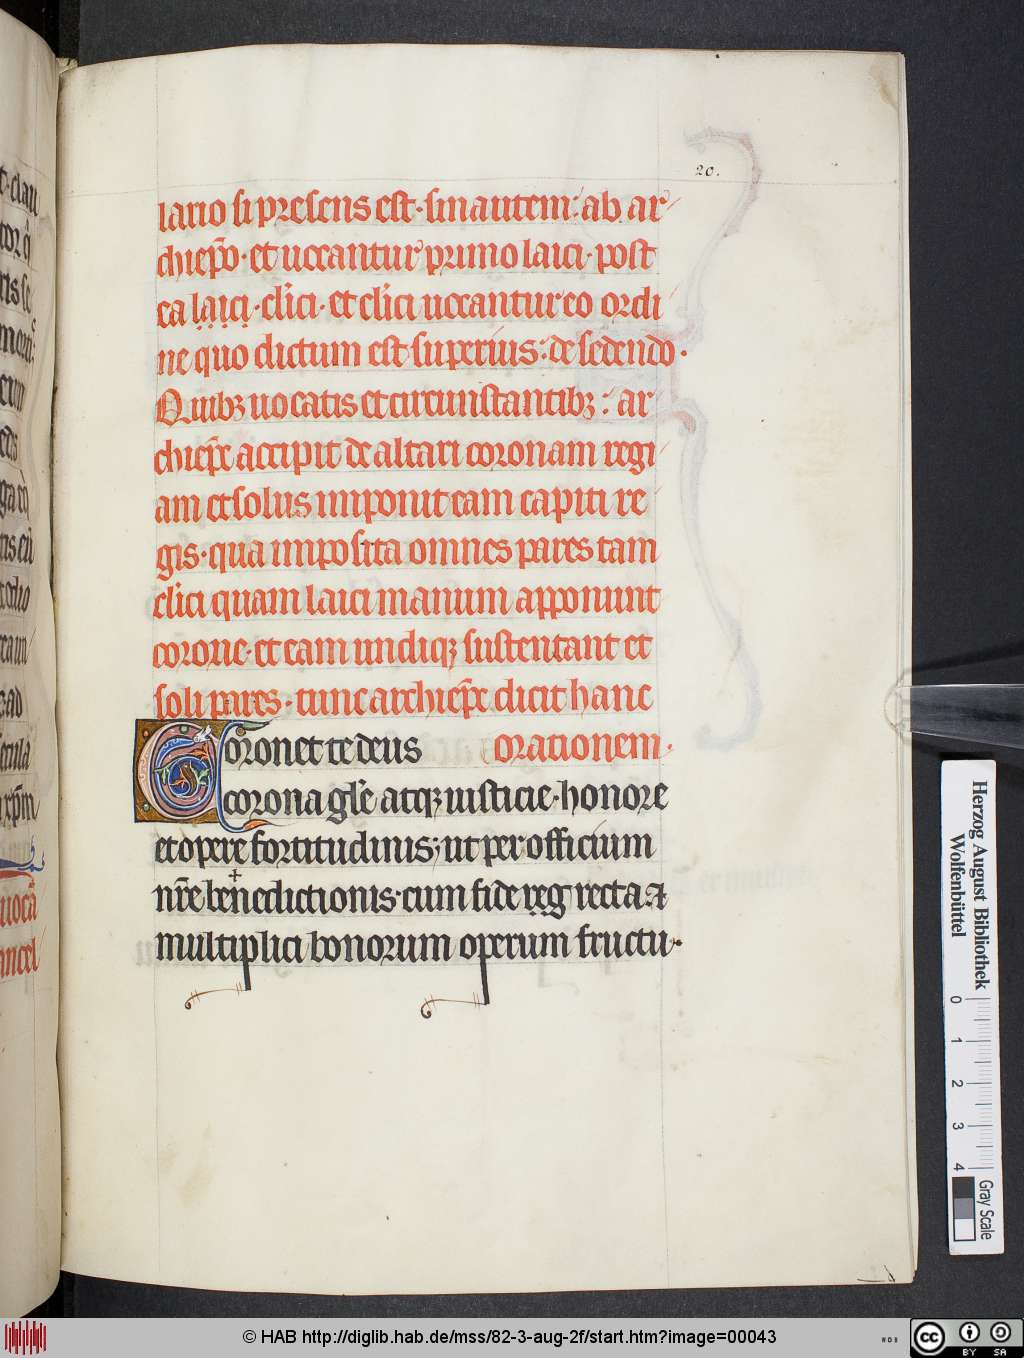 20.
lario si presens est· sin autem: ab ar
chiep̄o· et uocantur primo laici· post
ea laici· cl̄ici· et cl̄ici uocantur eo ordi
ne quo dictum est superius: de sedendo·
Quibꝫ uocatis et circunstantibꝫ: ar
chiep̄c accipit de altari coronam regi
am et solus imponit eam capiti re
gis· qua imposita omnes pares tam
cl̄ici quam laici manum apponunt
corone· et eam undiqꝫ sustentant et
soli pares· tunc archiep̄c dicit hanc
Coronet te deus orationem·
corona gl̄e atqꝫ iusticie· honore
et opere fortitudinis; ut per officium
nr̄e bene✝dictionis· cum fide reg recta ⁊
multiplici bonorum operum fructu·
Herzog August Bibliothek
Wolfenbüttel
0 1 2 3 4
Gray Scale
© HAB http://diglib.hab.de/mss/82-3-aug-2f/start.htm?image=00043
WDB
cc BY SA